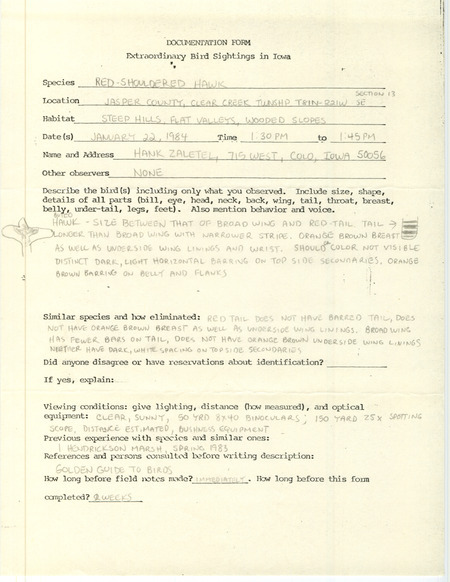 DOCUMENTATION FORM
Extraordinary Bird Sightings in Iowa
Species RED-SHOULDERED HAWK
SECTION 13
Location JASPER COUNTY, CLEAR CREEK TWNSHP T81N-R21W SE
Habitat STEEP HILLS, FLAT VALLEYS, WOODED SLOPES
Date(s) JANUARY 22, 1984 Time 1:30 PM to 1:45 PM
Name and Address HANK ZALETEL, 715 WEST, COLO, IOWA 50056
Other observers NONE
Describe the bird(s) including only what you observed. Include size, shape,
details of all parts (bill, eye, head, neck, back, wing, tail, throat, breast,
belly, under-tail, legs, feet). Also mention behavior and voice.
HAWK - SIZE BETWEEN THAT OF BROAD WING AND RED-TAIL TAIL →
LONGER THAN BROAD WING WITH NARROWER STRIPE. ORANGE BROWN BREAST
AS WELL AS UNDERSIDE WING LININGS AND WRIST. SHOULDER COLOR NOT VISIBLE
DISTINCT DARK, LIGHT HORIZONTAL BARRING ON TOP SIDE SECONDARIES. ORANGE
BROWN BARRING ON BELLY AND FLANKS
Similar species and how eliminated: RED TAIL DOES NOT HAVE BARRED TAIL, DOES
NOT HAVE ORANGE BROWN BREAST AS WELL AS UNDERSIDE WING LININGS. BROADWING
HAS FEWER BARS ON TAIL, DOES NOT HAVE ORANGE BROWN UNDERSIDE WING LININGS
NEITHER HAVE DARK, WHITE SPACING ON TOPSIDE SECONDARIES
Did anyone disagree or have reservations about identification?
If yes, explain:
Viewing conditions: give lighting, distance (how measured), and optical
equipment: CLEAR, SUNNY, 50 YRD 8X40 BINOCULARS; 150 YARD 25X SPOTTING
SCOPE, DISTANCE ESTIMATED, BUSHNELL EQUIPMENT
Previous experience with species and similar ones:
1 HENDRICKSON MARSH, SPRING 1983
References and persons consulted before writing description:
GOLDEN GUIDE TO BIRDS
How long before field notes made? IMMEDIATELY. How long before this form
completed? 2 WEEKS